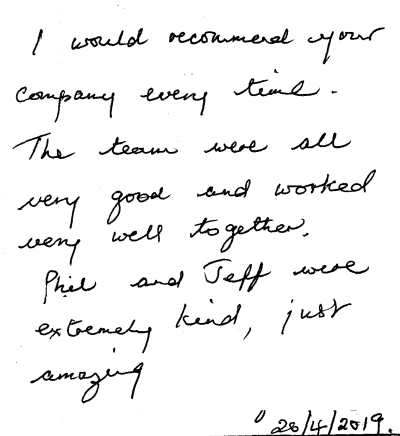 I would recommend your
company every time.
The team were all
very good and worked
very well together.
Phil and Jeff were
extremely kind, just
amazing
20/4/2019.